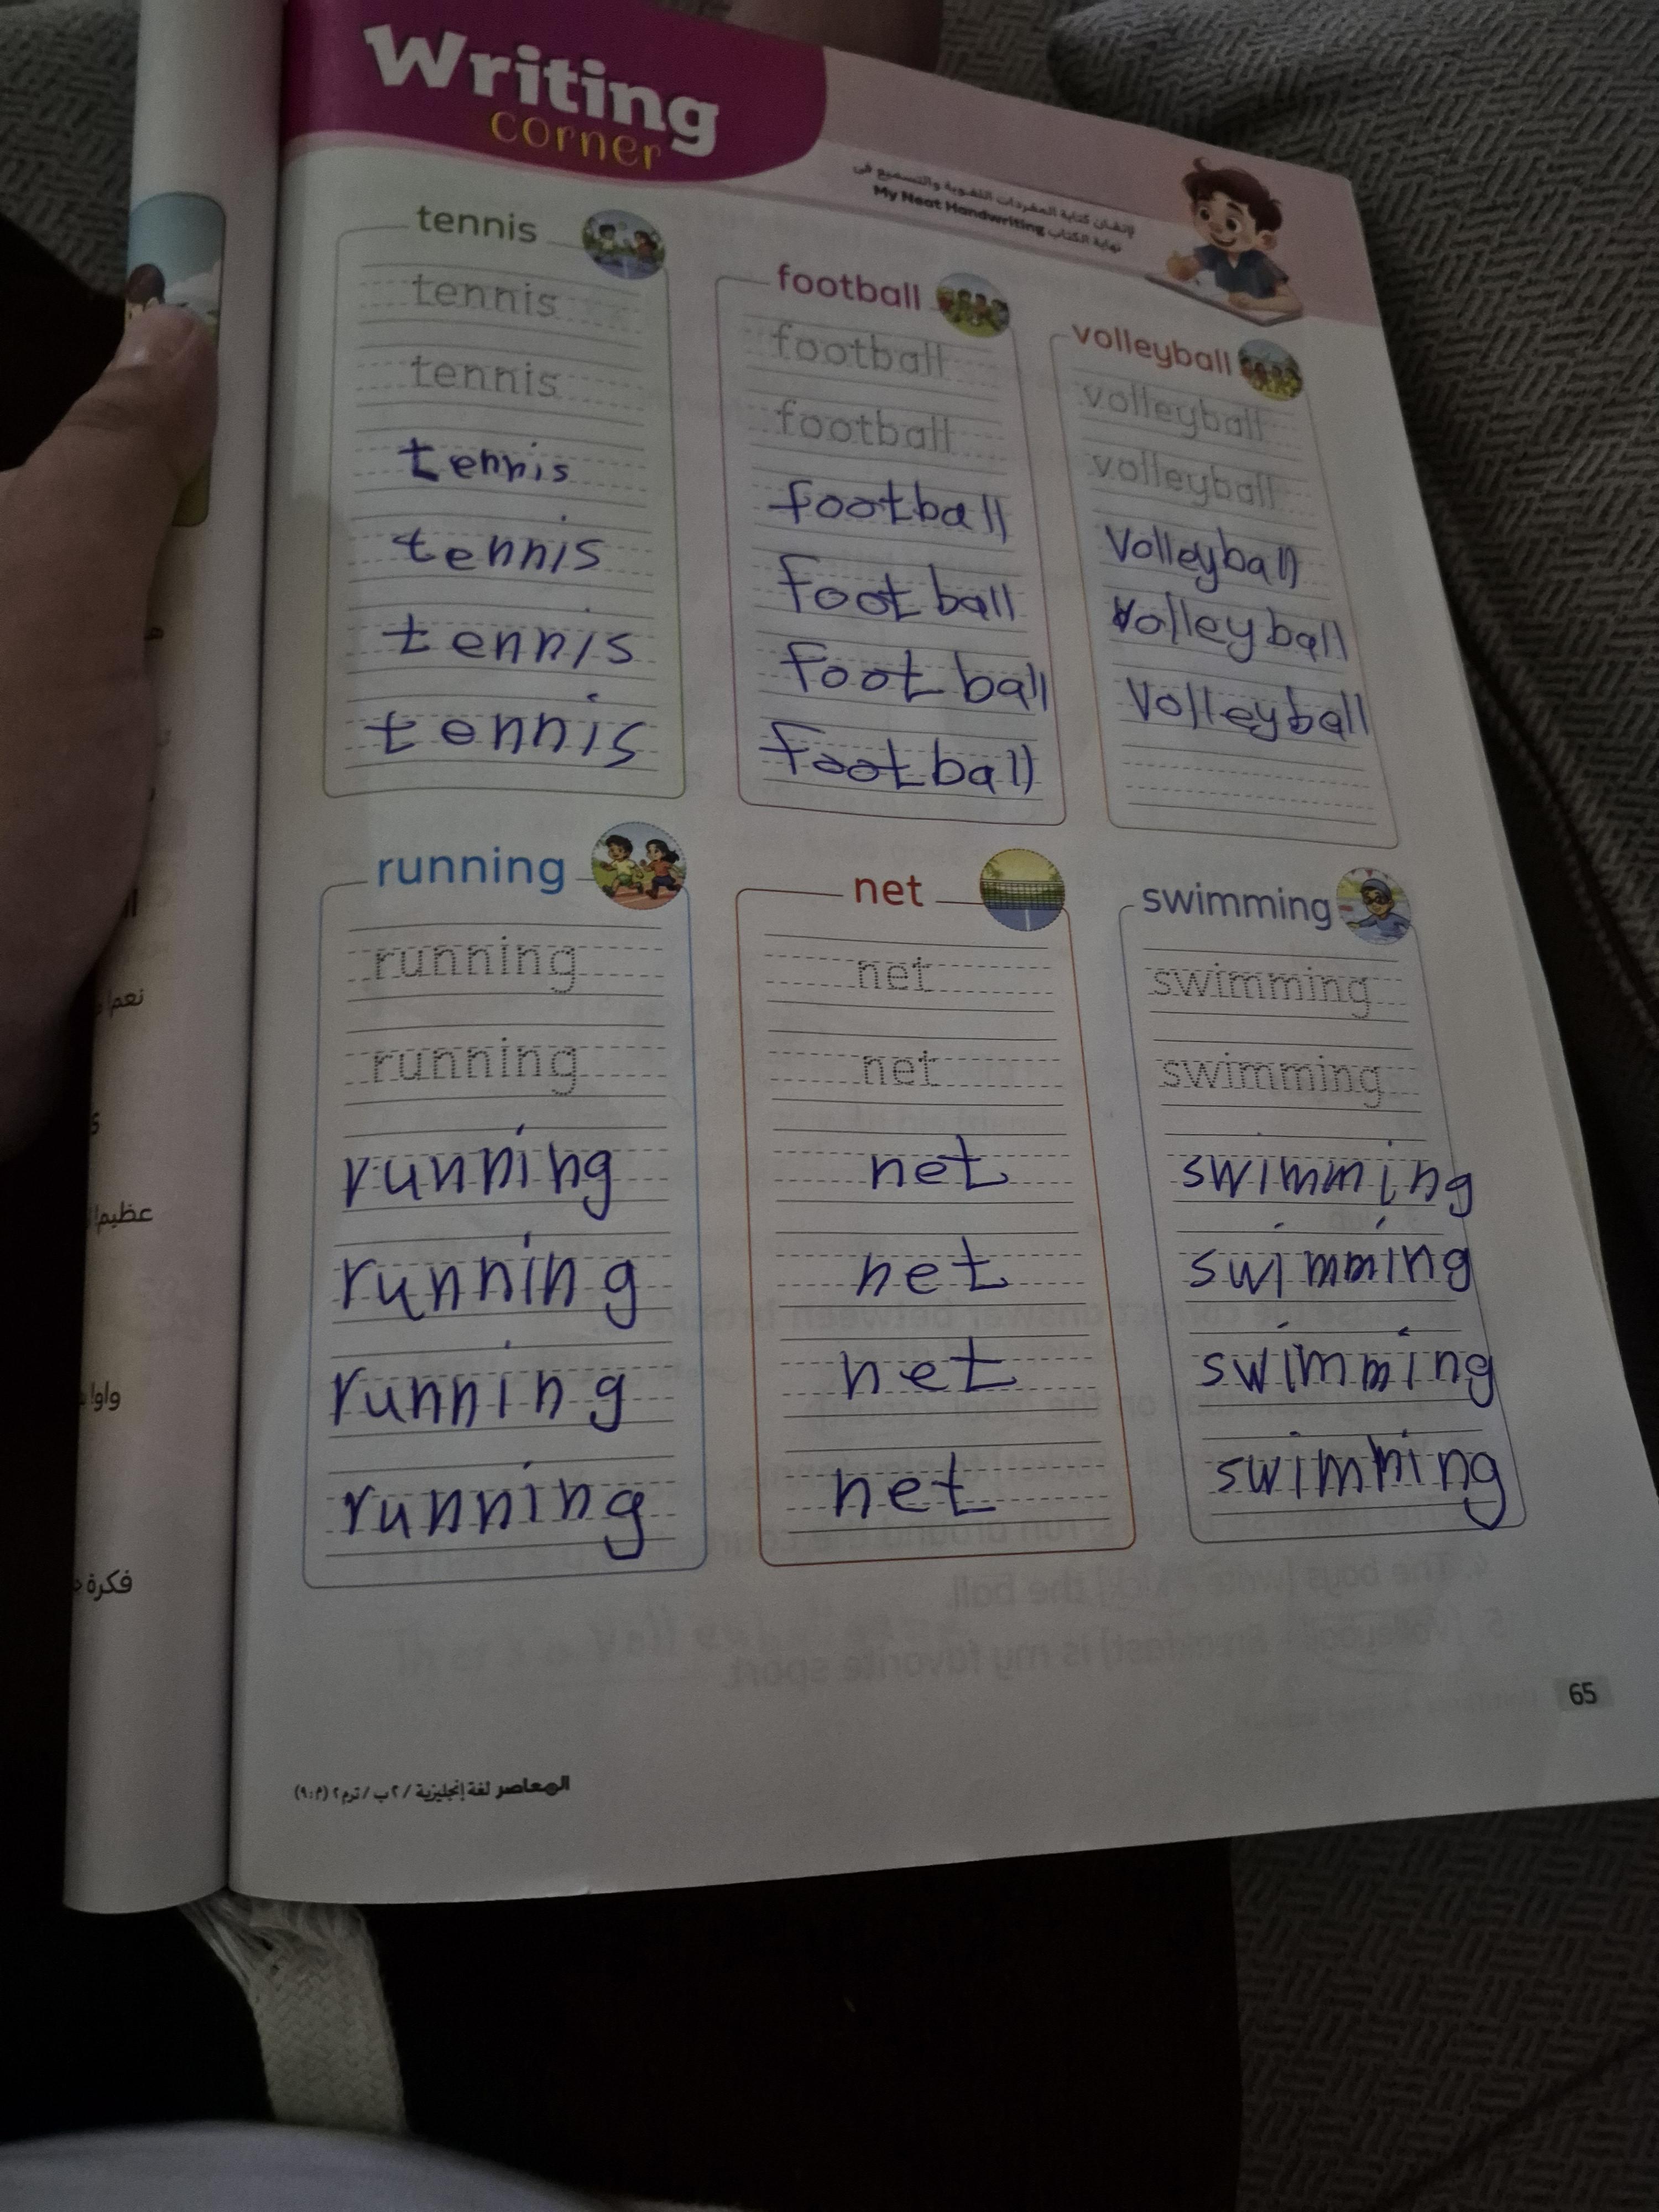 Writing
corner
لإتقان كتابة المفردات اللغوية والتسميع فى
My Neat Handwriting نهاية الكتاب
tennis
tennis
tennis
tennis
tennis
tennis
tennis
football
football
football
football
football
football
football
volleyball
volleyball
volleyball
Volleyball
Volleyball
Volleyball
running
running
running
running
running
running
running
net
net
net
net
net
net
net
swimming
swimming
swimming
swimming
swimming
swimming
swimming
65
المعاصر لغة إنجليزية / ٢ ب / ترم ٢ (م: ٩)
نعم!
عظيم!
واو!
فكرة